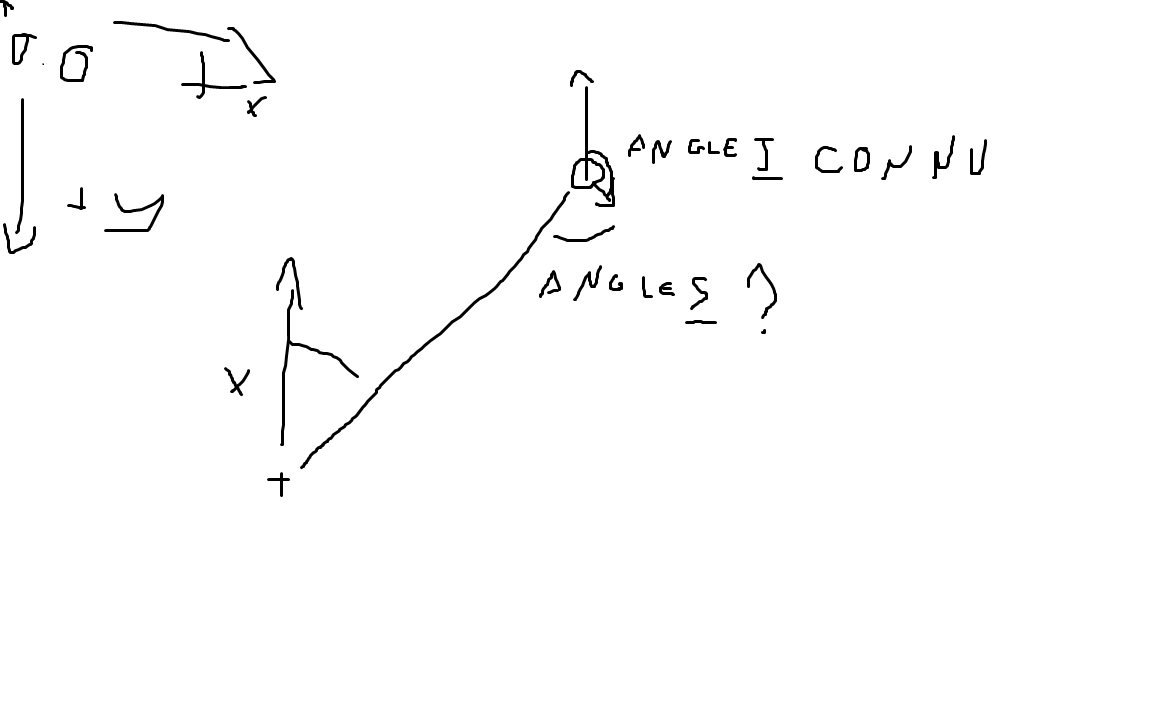 0.0
+ x
+ y
ANGLE I CONNU
ANGLE S ?
X
+